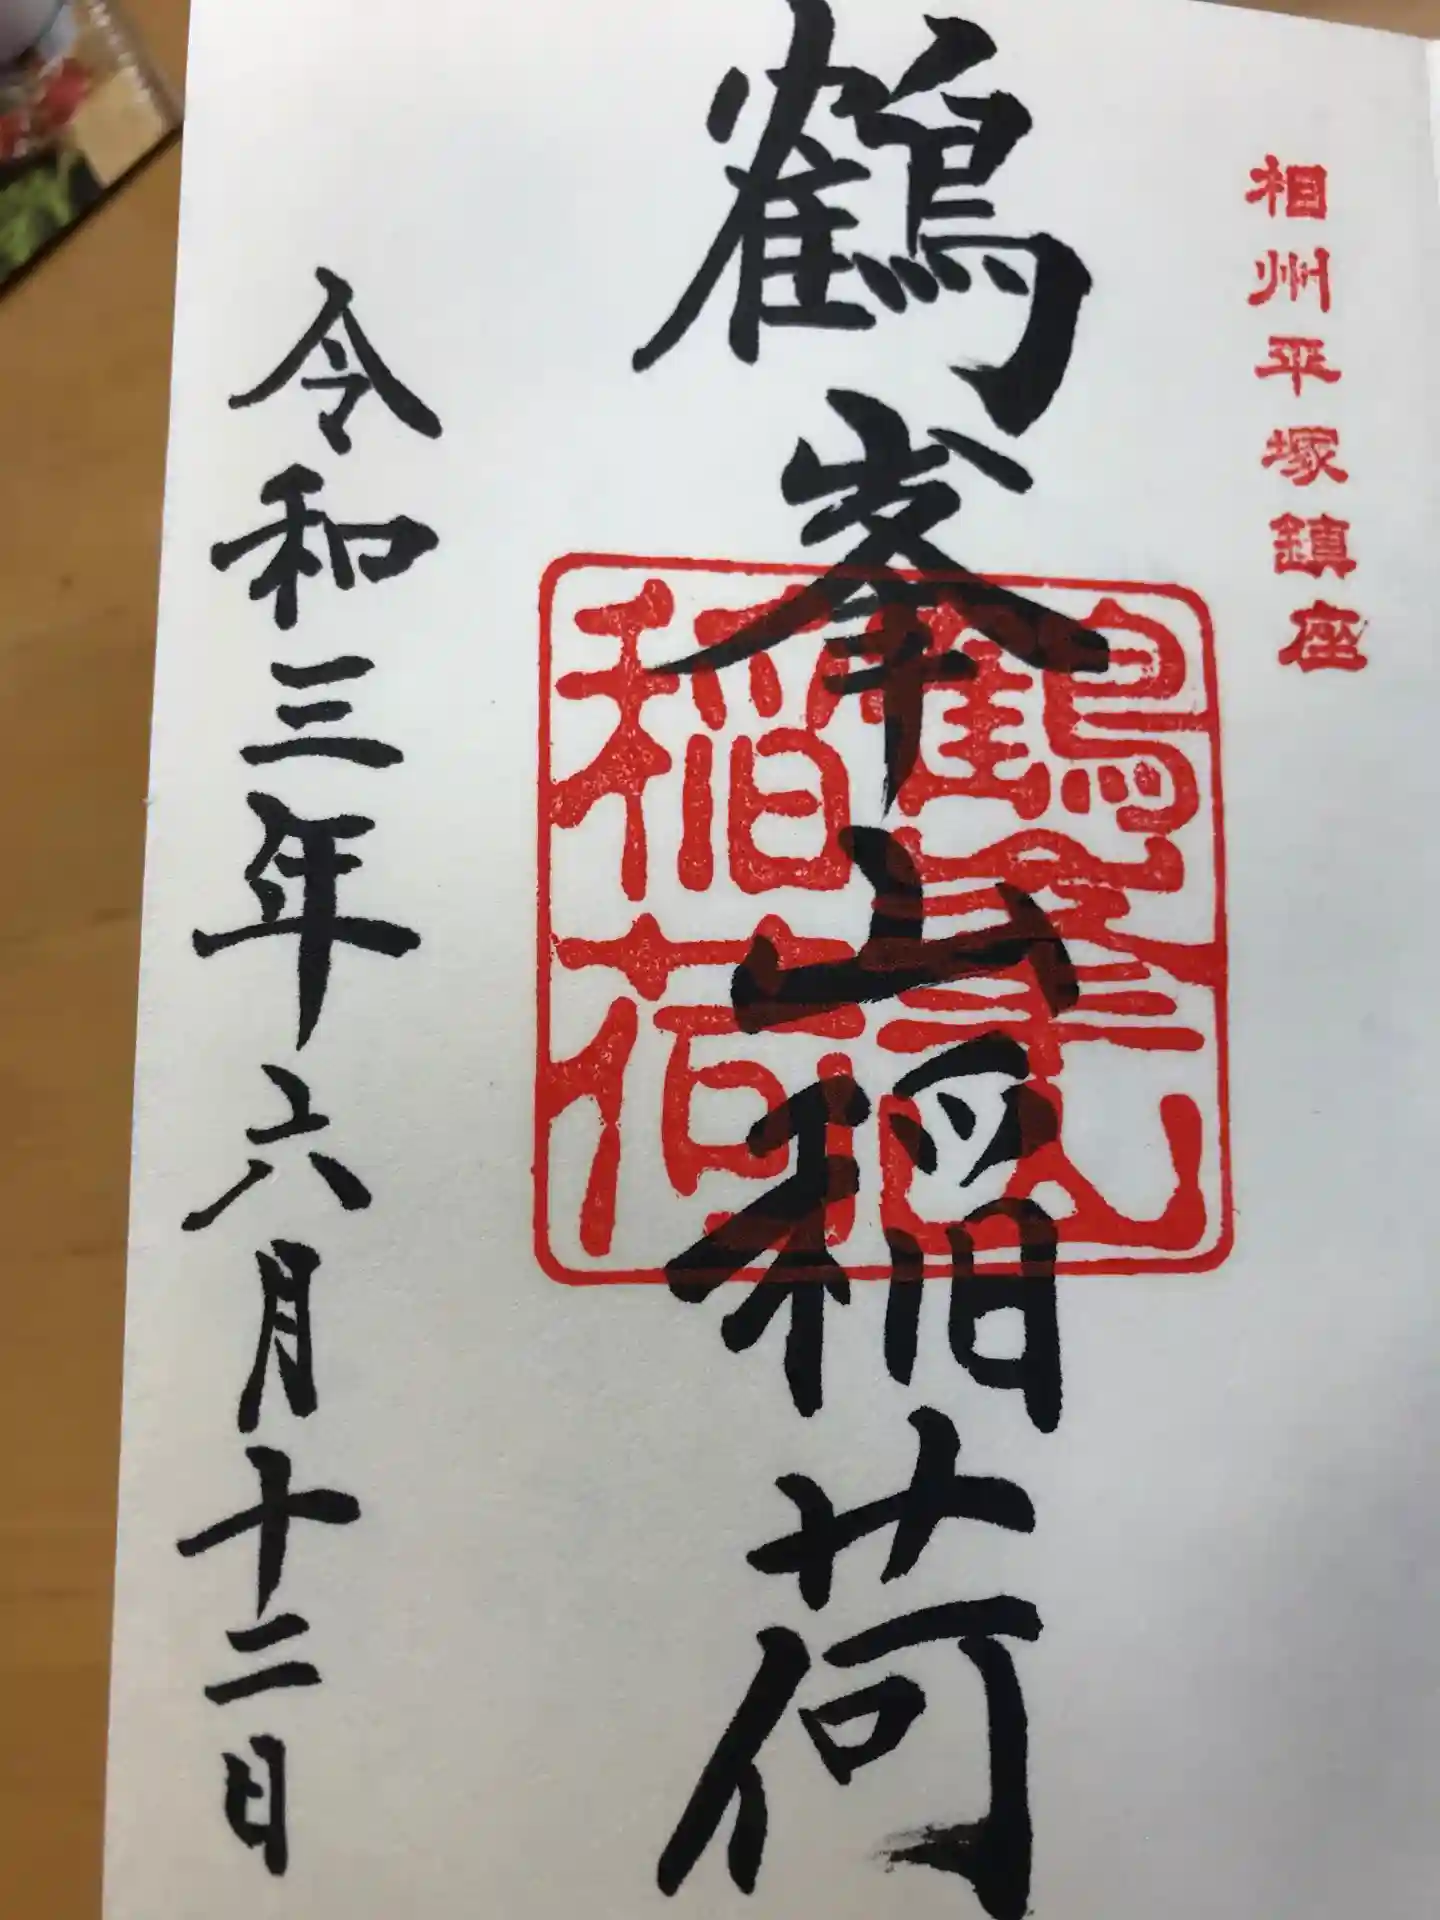 相州平塚鎮座
鶴峯山稲荷
鶴峯山
稲荷
令和三年六月十二日